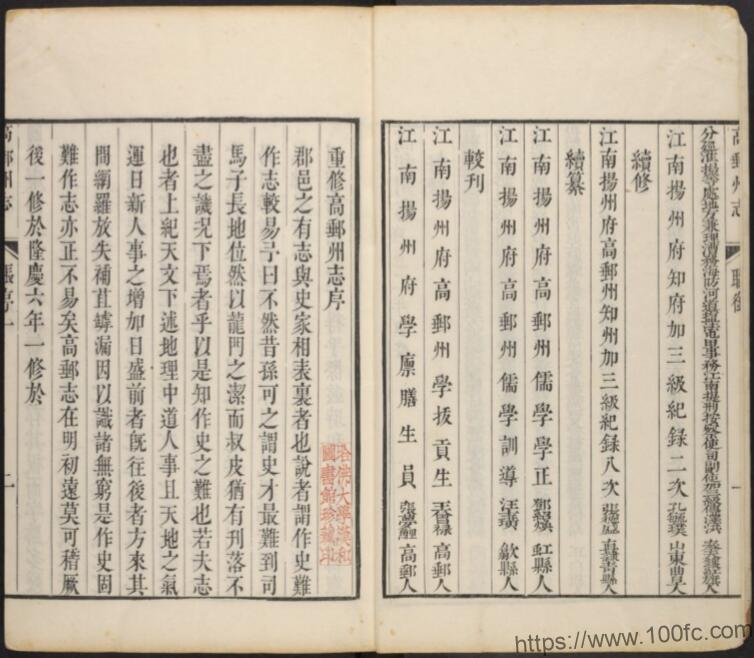 高郵州志
職銜
一
江南揚州府知府加三級紀錄二次 孔 山東曲阜人
續修
江南揚州府高郵州知州加三級紀錄八次 張德盛 直隸青縣人
續纂
江南揚州府高郵州儒學學正 鄧紹煥 虹縣人
江南揚州府高郵州儒學訓導 汪 歙縣人
江南揚州府高郵州學拔貢生 王曾祿 高郵人
較刊
江南揚州府學廩膳生員 張 高郵人
重修高郵州志序
郡邑之有志與史家相表裏者也說者謂作史難
作志較易予曰不然昔孫可之謂史才最難到司
馬子長地位然以龍門之潔而叔皮猶有刊落不
盡之譏況下焉者乎以是知作史之難也若夫志
也者上紀天文下述地理中道人事且天地之氣
運日新人事之增加日盛前者旣往後者方來其
間網羅放失補苴罅漏因以識諸無窮是作史固
難作志亦正不易矣高郵志在明初遠莫可稽厥
後一修於隆慶六年一修於
高郵州志
張序一
哈佛大學漢和
圖書館珍藏印
https://www.100fc.com